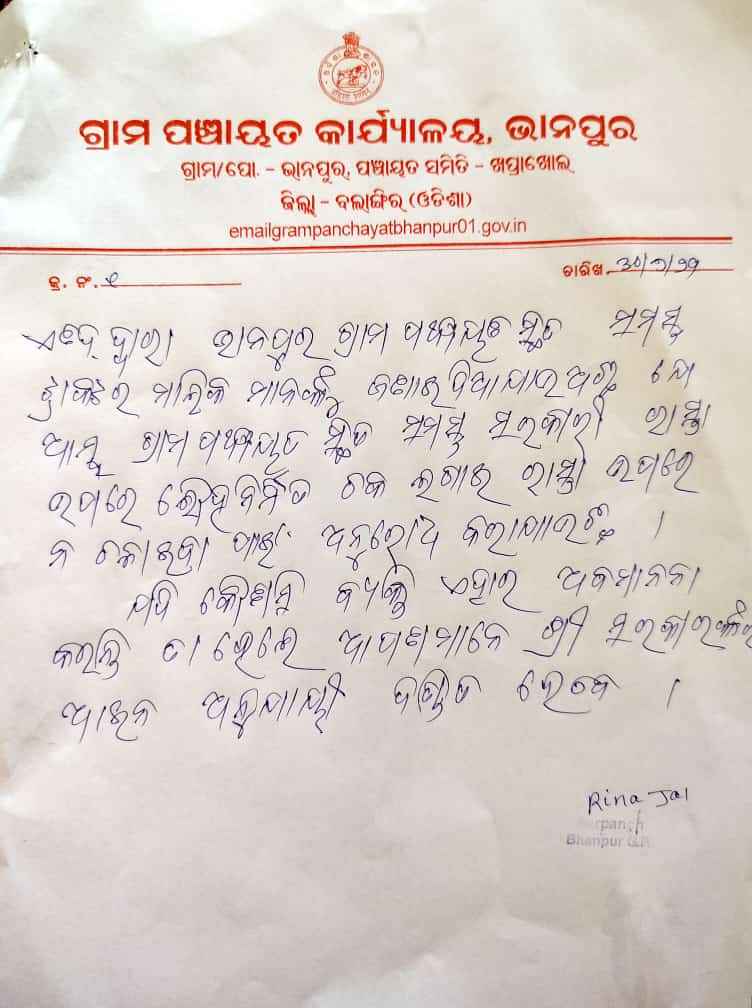 ଗ୍ରାମ ପଞ୍ଚାୟତ କାର୍ଯ୍ୟାଳୟ, ଭାନପୁର
ଗ୍ରାମ/ପୋ. - ଭାନପୁର, ପଞ୍ଚାୟତ ସମିତି - ଖପ୍ରାଖୋଲ
ଜିଲ୍ଲା - ବଲାଙ୍ଗିର (ଓଡିଶା)
emailgrampanchayatbhanpur01.gov.in
କ୍ର. ନଂ.
ତାରିଖ.
ଏତଦ୍ ଦ୍ୱାରା ଭାନପୁର ଗ୍ରାମ ପଞ୍ଚାୟତ ସ୍ଥିତ ସମସ୍ତ
ଟ୍ରାକଟର ମାଲିକ ମାନଙ୍କୁ ଜଣାଇ ଦିଆଯାଇ ଅଛି ଯେ
ଆମ୍ଭ ଗ୍ରାମ ପଞ୍ଚାୟତ ସ୍ଥିତ ସମସ୍ତ ସରକାରୀ ରାସ୍ତା
ଉପରେ ଲୌହନିର୍ମିତ ଚକ ଲଗାଇ ରାସ୍ତା ଉପରେ
ନ ଚଳାଇବା ପାଇଁ ଅନୁରୋଧ କରାଯାଉଅଛି ।
ଯଦି କୌଣସି ବ୍ୟକ୍ତି ଏହାର ଅବମାନନା
କରନ୍ତି ତା ହେଲେ ଆପଣମାନେ ଶ୍ରୀ ସରକାରଙ୍କର
ଆଇନ ଅନୁଯାୟୀ ଦଣ୍ଡିତ ହେବେ ।
Rina Jal
Sarpanch
Bhanpur G.P.